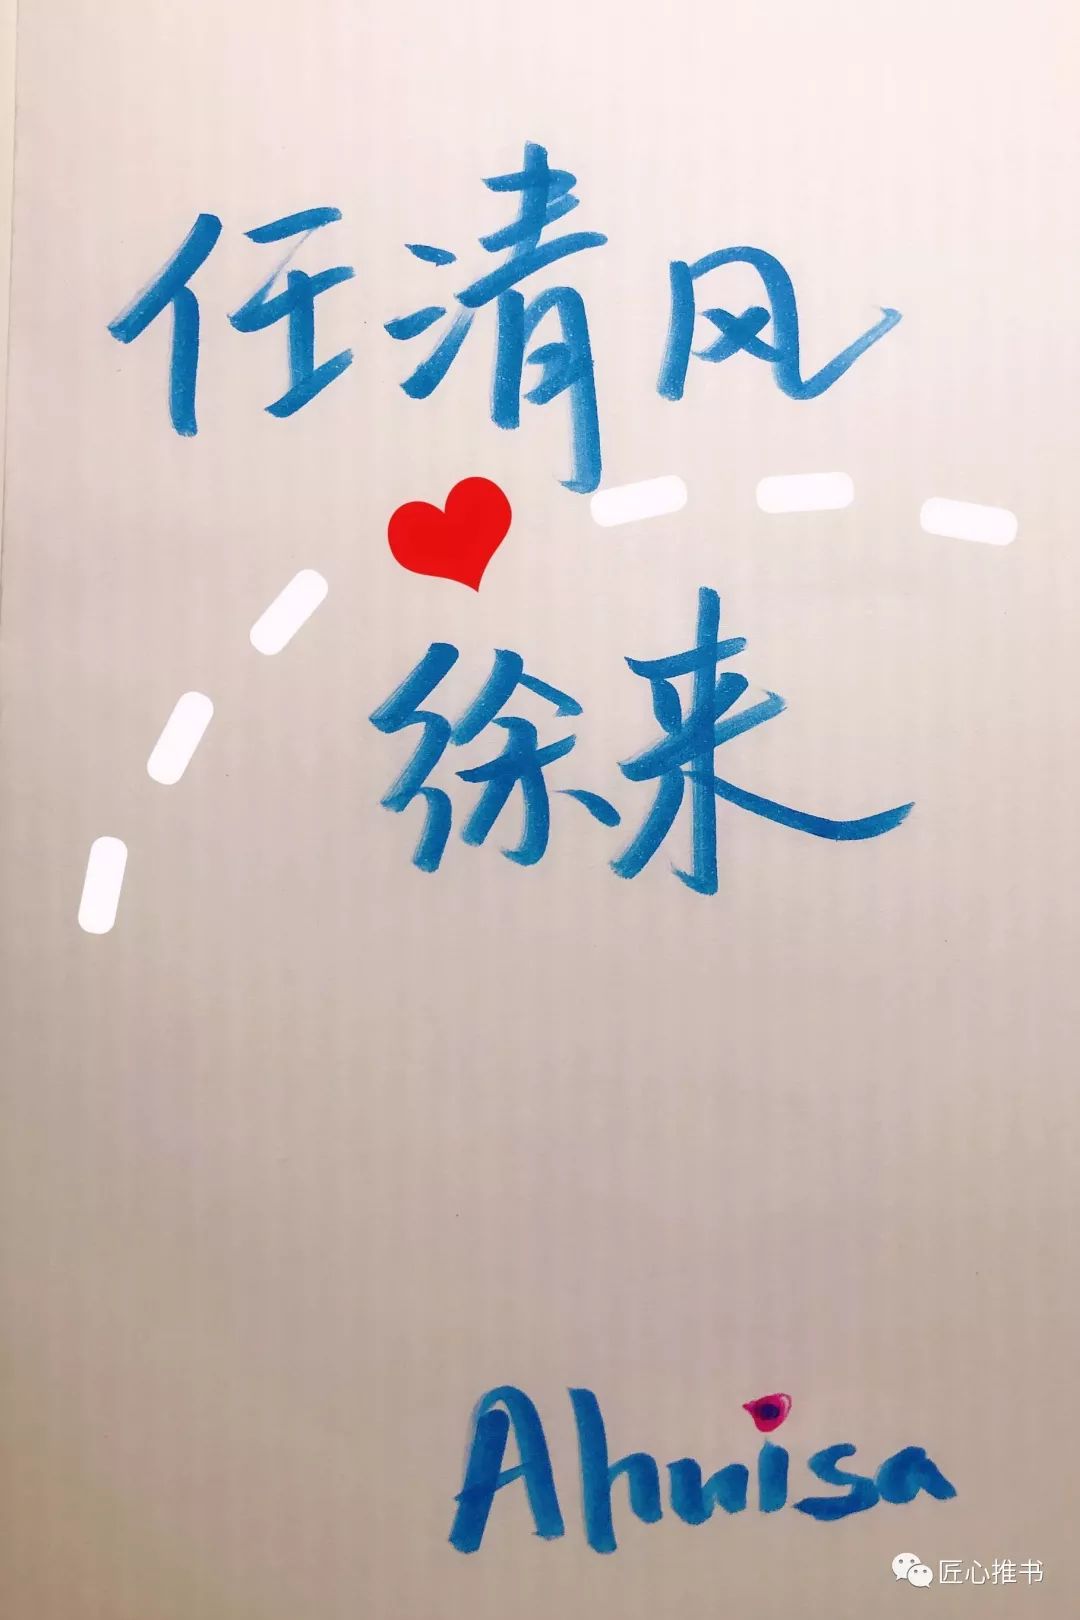 任清风
徐来
Ahnisa
匠心推书